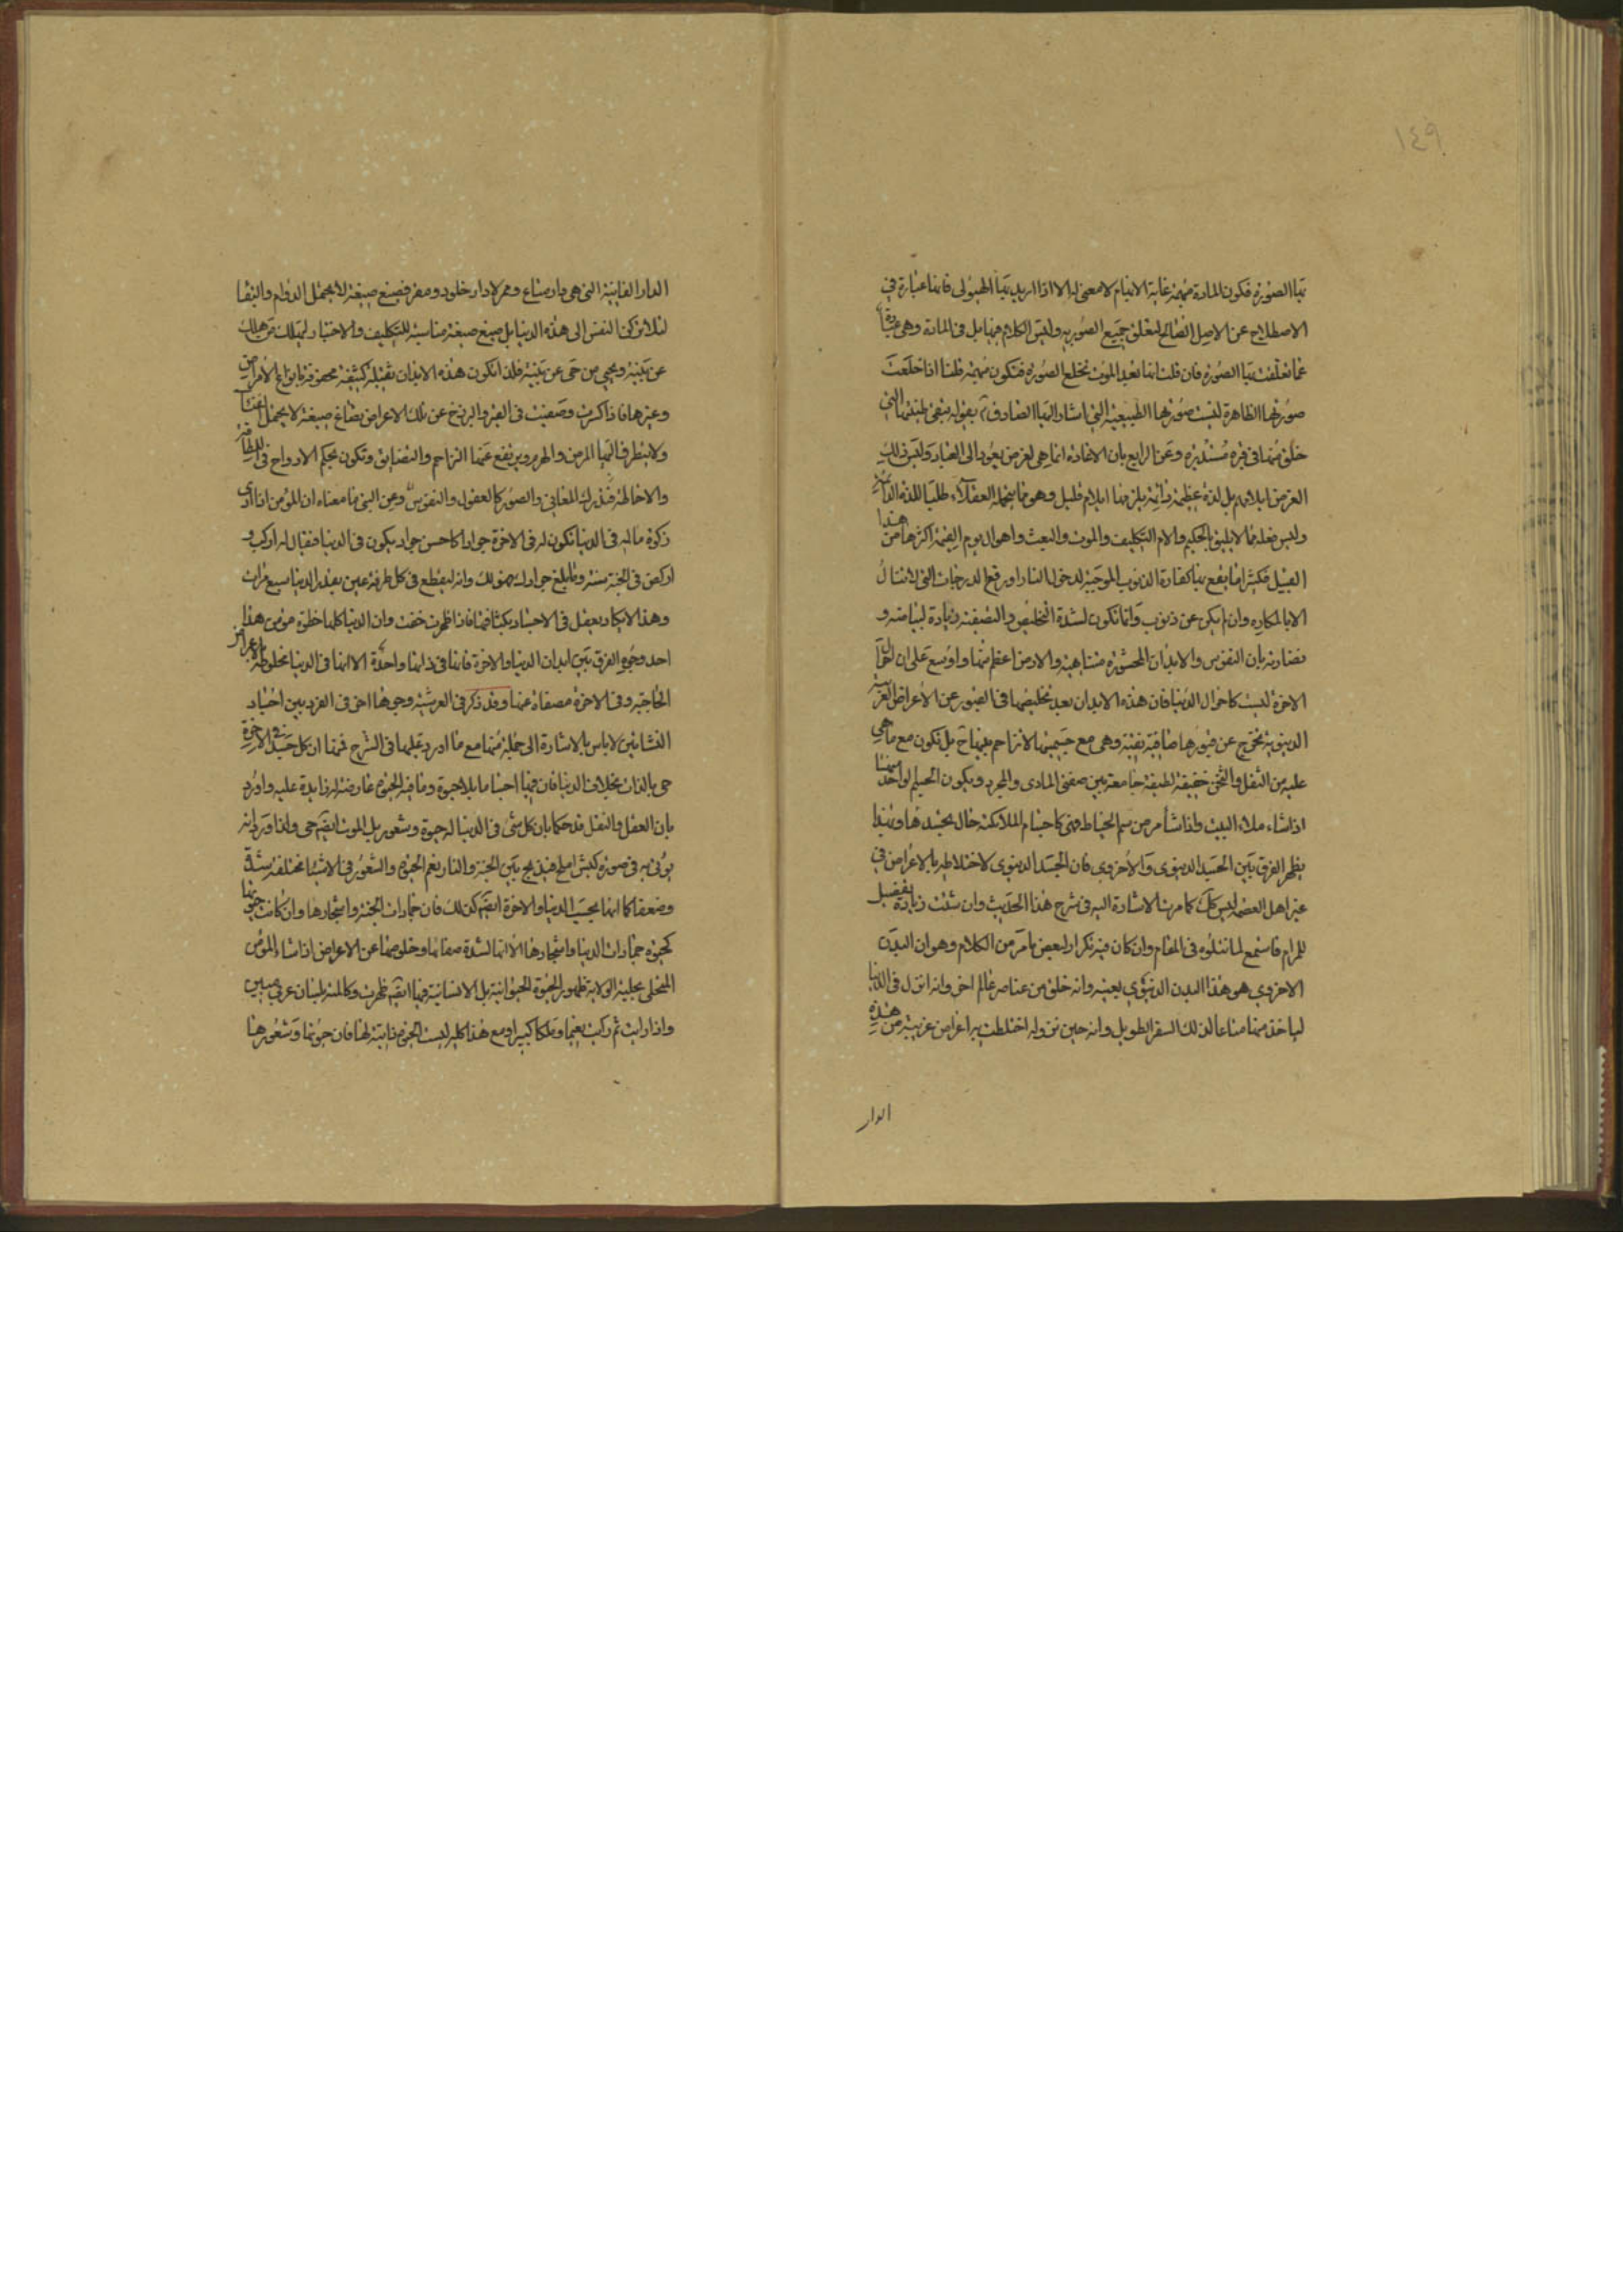 ١٤٩
بها الصورة فكون المادة مبهمة غاية الابهام لا معنى له الا اذا اريد بها الهيولى فانها عبارة في
الاصطلاح عن الاصل الصالح لتعلق جميع الصور به وليس الكلام فيها بل في المادة وهي عبارة
عما تعلقت بها الصورة فان قلت انها بعد الموت تخلع الصورة فتكون مبهمة قلنا اذا خلعت
صورتها الظاهرة لبست صورتها الطبيعية التي اشار اليها الصادق ع بقوله تبقى طينتها التي
خلق منها في قبره مستديرة وعن الرابع بان الاعادة انما هي لغرض يعود الى العباد وليس ذلك
الغرض ايلامهم بل لذة عظيمة دائمة يلزمها ايلام قليل وهو مما يتحمله العقلاء طلبا للذة الدائمة
وليس فعله مما لا يليق بالحكيم والام التكليف والموت والبعث واهوال يوم القيمة اكثرها من هذا
القبيل فكثيرا ما يقع بها كفارة الذنوب الموجبة لدخول النار او رفع الدرجات التي لا تنال
الا بالمكاره وان لم يكن عن ذنوب وانما تكون لشدة التخليص والتصفية وزيادة لبياضه و
نضارته بان النفوس والابدان المحشورة متناهية والارض اعظم منها واوسع على ان احوال
الاخرة ليست كاحوال الدنيا فان هذه الابدان بعد تخليصها في القبور عن الاعراض الغريبة
الدنيوية تخرج عن قبورها صافية نقية وهي مع جسميتها لا تزاحم بينها ح بل تكون مع ما هي
عليه من الثقل والثخن خفيفة لطيفة جامعة بين صفتي المادي والمجرد ويكون الجسم لواحد منها
اذا شاء ملاء البيت واذا شاء مر من سم الخياط فهي كاجسام الملائكة حال تجسدها وبهذا
يظهر الفرق بين الجسد الدنيوي والاخروي فان الجسد الدنيوي لاختلاطه بالاعراض في
غير اهل العصمة ليس كك كما مرت الاشارة اليه في شرح هذا الحديث وان شئت زيادة تفصيل
للمرام فاستمع لما نتلوه في المقام وان كان فيه تكرار لبعض ما مر من الكلام وهو ان البدن
الاخروي هو هذا البدن الدنيوي بعينه وانه خلق من عناصر عالم اخر وانه انزل في الدنيا
لياخذ منها متاعا لذلك السفر الطويل وانه حين نزوله اختلطت به اعراض غريبة من هذه
الدار
الدار الفانية التي هي دار متاع وممر لا دار خلود ومقر فصيغ صيغة لا يحتمل الدوام والبقا
لئلا تركن النفس الى هذه الدنيا بل صيغ صيغة مناسبة للتكليف والاختبار ليهلك من هلك
عن بينة ويحيى من حي عن بينة فلذا تكون هذه الابدان ثقيلة كثيفة محفوفة بانواع الامراض
وغيرها فاذا كسرت وصفيت في القبر والبرزخ عن تلك الاعراض تصاغ صيغة لا يحتمل الفنا
ولا يتطرق اليها المرض والهرم ويرتفع عنها التزاحم والتضايق وتكون بحكم الارواح في اللطافة
والاحاطة فتدرك المعاني والصور كالعقول والنفوس وعن النبي ما معناه ان المؤمن اذا ادى
زكوة ماله في الدنيا تكون له في الاخرة جوادا كاحسن جواد يكون في الدنيا فيقال له اركب و
اركض في الجنة سنة وما بلغ جوادك فهو لك وانه ليقطع في كل طرفة عين بقدر الدنيا سبع مرات
وهذا لا يكاد يعقل في الاجساد بكثافتها فاذا ظهرت خفت وان الدنيا كلها خطوة مؤمن هذا
احد وجوه الفرق بين ابدان الدنيا والاخرة فانها في ذاتها واحدة الا انها في الدنيا مخلوطة بالاعراض
الخارجية وفي الاخرة مصفاة عنها وقد ذكر في العرشية وجوها اخر في الفرق بين اجساد
النشاتين لا باس بالاشارة الى جملة منها مع ما اورد عليها في الشرح فمنها ان كل جسد في الاخرة
حي بالذات بخلاف الدنيا فان فيها اجساما بلا حيوة وما فيه الحيوة عارضة له زايدة عليه واورد
بان العقل والنقل قد حكما بان كل شئ في الدنيا له حيوة وشعور بل الموت ايضا حي ولذا ورد انه
يؤتى به في صورة كبش املح فيذبح بين الجنة والنار نعم الحيوة والشعور في الاشياء مختلفة شدة
وضعفا كما انها بحسب الدنيا والاخرة ايضا كذلك فان جمادات الجنة واشجارها وان كانت حيوتها
كحيوة جمادات الدنيا واشجارها الا انها لشدة صفائها وخلوصها عن الاعراض اذا شاء المؤمن
المتحلى بحلية الولاية ظهور الحيوة الحيوانية بل الانسانية فيها ايضا ظهرت وكالمته بلسان عربي مبين
واذا رايت ثم رايت نعيما وملكا كبيرا ومع هذا كله ليست الحيوة ذاتية لها فان حيوتها وشعورها